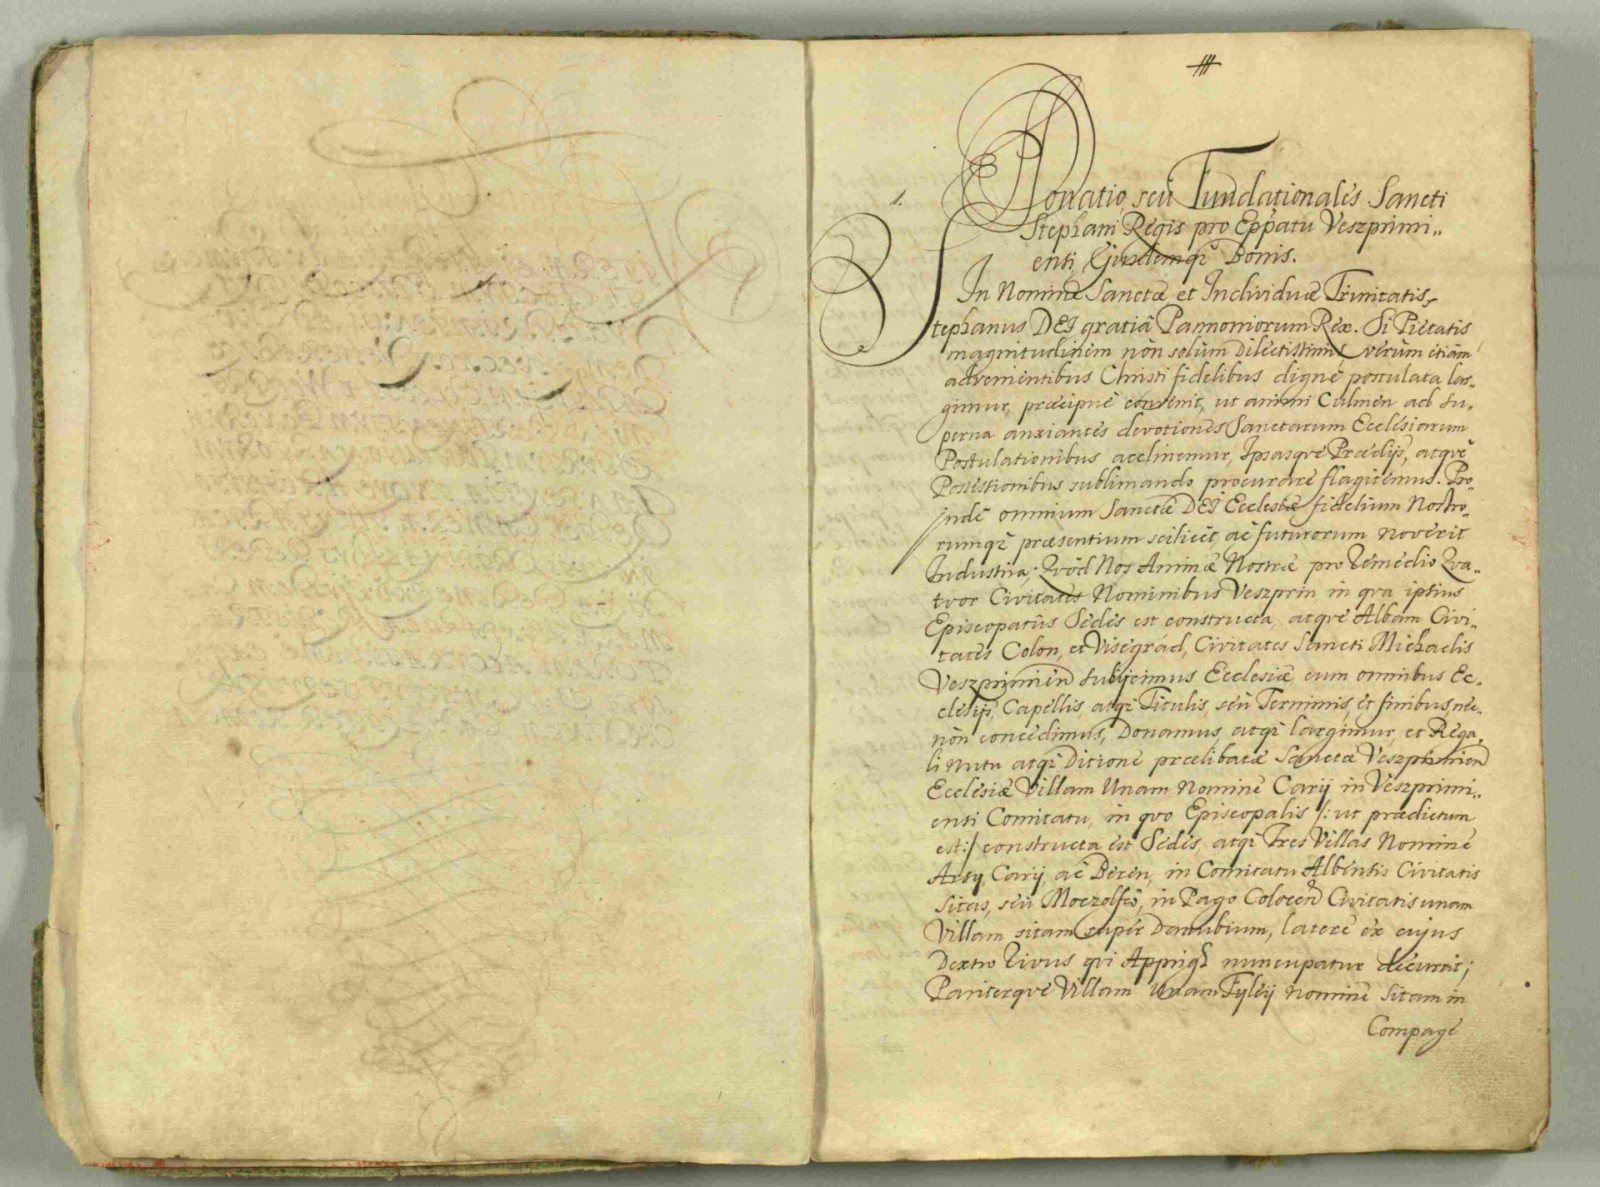 1.
Donatio, seu Fundationales Sancti
Stephani Regis pro Eppatu Veszprimi„
enti, Ejusdemq3 Bonis.
In Nomine Sanctæ et Individuæ Trinitatis,
Stephanus DEI gratiâ Pannoniorum Rex. Si Pietatis
magnitudinem non solum Dilectissimis verùm etiam
advenientibus Christi fidelibus digne postulata lar„
gimur, præcipuè convenit, ut animi Culmen ad su„
perna anxiantes devotiones Sanctarum Ecclesiarum
Postulationibus acclinemur, Ipsasque Prædijs, atque
Possessionibus sublimando procurare flagitemus. Pro„
inde omnium Sanctæ DEI Ecclesiæ fidelium Nostro„
rumq3 præsentium scilicet ac futurorum noverit
Industria; Quòd Nos Animæ Nostræ pro remedio Qua„
tuor Civitates Nominibus Veszprin, in qua ipsius
Episcopatûs Sedes est constructa, atque Albam Civi„
tatem Colon, et Visegrád, Civitates Sancti Michaelis
Veszprimien subijcimus Ecclesiæ, cum omnibus Ec„
clesijs, Capellis, atq3 Titulis, seu Terminis, et finibus, nec„
non concedimus, Donamus, atq3 largimur, et Rega„
li Nutu atq3 Ditione prælibatæ Sanctæ Veszprimien
Ecclesiæ Villam Unam Nomine Carij in Veszprimi„
enti Comitatu, in quo Episcopalis /: ut prædictum
est :/ constructa est Sedes, atq3 Tres Villas Nomine
Arsij, Carij, ac Beren, in Comitatu Albensis Civitatis
Sitas, seu in Pago Colocen Civitatis unam
Villam sitam super Danubium, latere ex cujus
Dextro Rivus qui nuncupatur decurrit;
Pariterque Villam Unam Fyleij nomine Sitam in
Compage